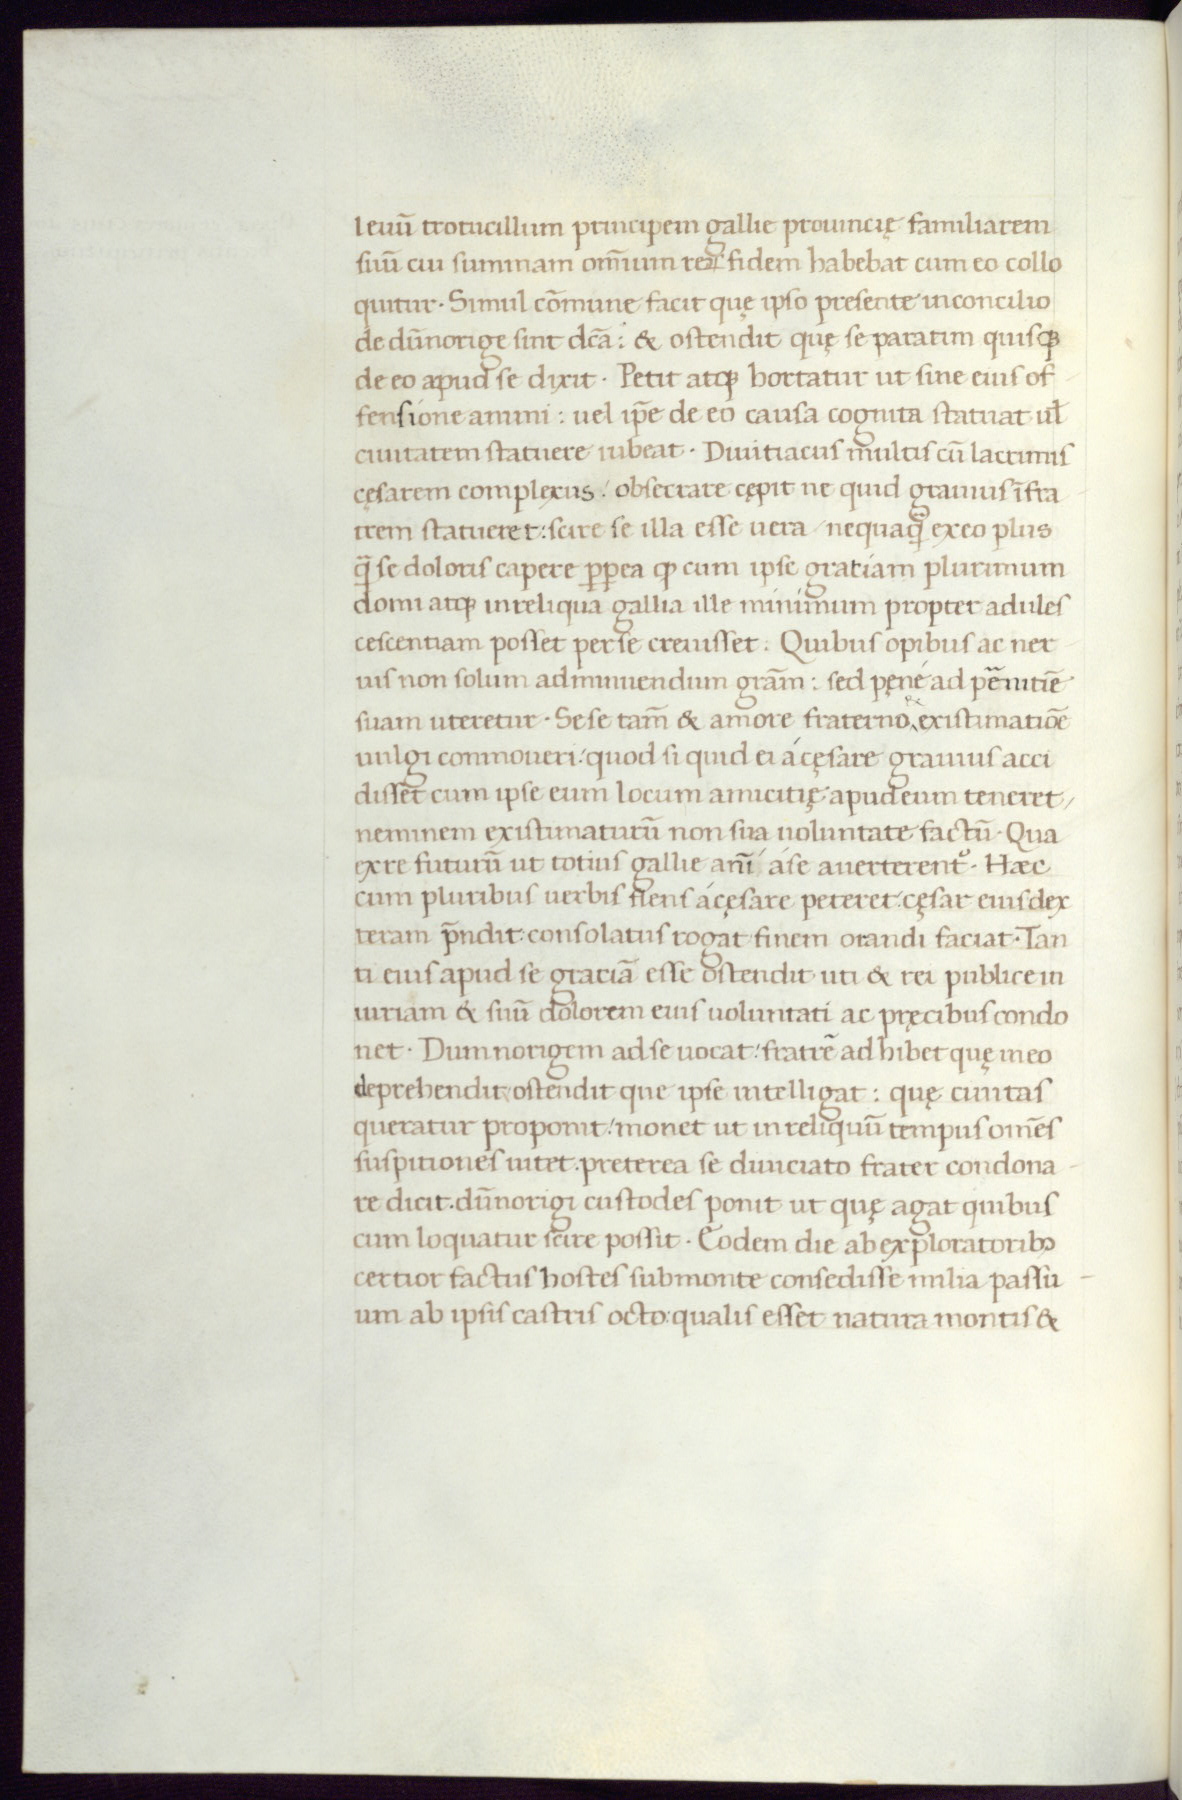 leuiũ trotucillum principem gallie prouincię familiarem
suũ cui summam om̃ium rer̃ fidem habebat cum eo collo
quitur · Simul cõmune facit quę ipso presente in concilio
de dũnorige sint dc̃a : & ostendit quę se paratim quisqꝫ
de eo apud se dixit · Petit atqꝫ hortatur ut sine eius of
fensione animi : uel ip̃e de eo causa cognita statuat ul̃
ciuitatem statuere iubeat · Diuitiacus multis cũ lacrimis
cęsarem complexus : obsecrare cępit ne quid grauius ĩ fra
trem statueret : scire se illa esse uera / nequaq̃ ex eo plus
q̃ se doloris capere p̱p̱ea ꝙ cum ipse gratiam plurimum
domi atqꝫ in reliqua gallia ille minimum propter adules
cescentiam posset per se creuisset : Quibus opibus ac ner
uis non solum ad minuendum gram̃ : sed pęne ad pernitiẽ
suam uteretur · Sese tam̃ & amore fraterno & existimatiõe
uulgi commoueri : quod si quid ei á cęsare grauius acci
disset cum ipse eum locum amicitię apud eum teneret /
neminem existimaturũ non sua uoluntate factũ · Qua
ex re futurũ ut totius gallie anĩ á se auerterent᷑ · Hæc
cum pluribus uerbis flens á cęsare peteret : cęsar eius dex
teram p̃ndit consolatus rogat finem orandi faciat · Tan
ti eius apud se graciã esse ostendit uti & rei publice in
iuriam & suũ dolorem eius uoluntati ac pręcibus condo
net · Dumnorigem ad se uocat : fratrẽ adhibet quę in eo
deprehendit ostendit que ipse intelligat : quę ciuitas
queratur proponit : monet ut in reliquũ tempus om̃es
suspitiones uitet . preterea se diuiciato frater condona
re dicit . dũnorigi custodes ponit ut quę agat quibus
cum loquatur scire possit · Eodem die ab exploratoribꝫ
certior factus hostes sub monte consedisse milia passu
um ab ipsis castris octo : qualis esset natura montis &